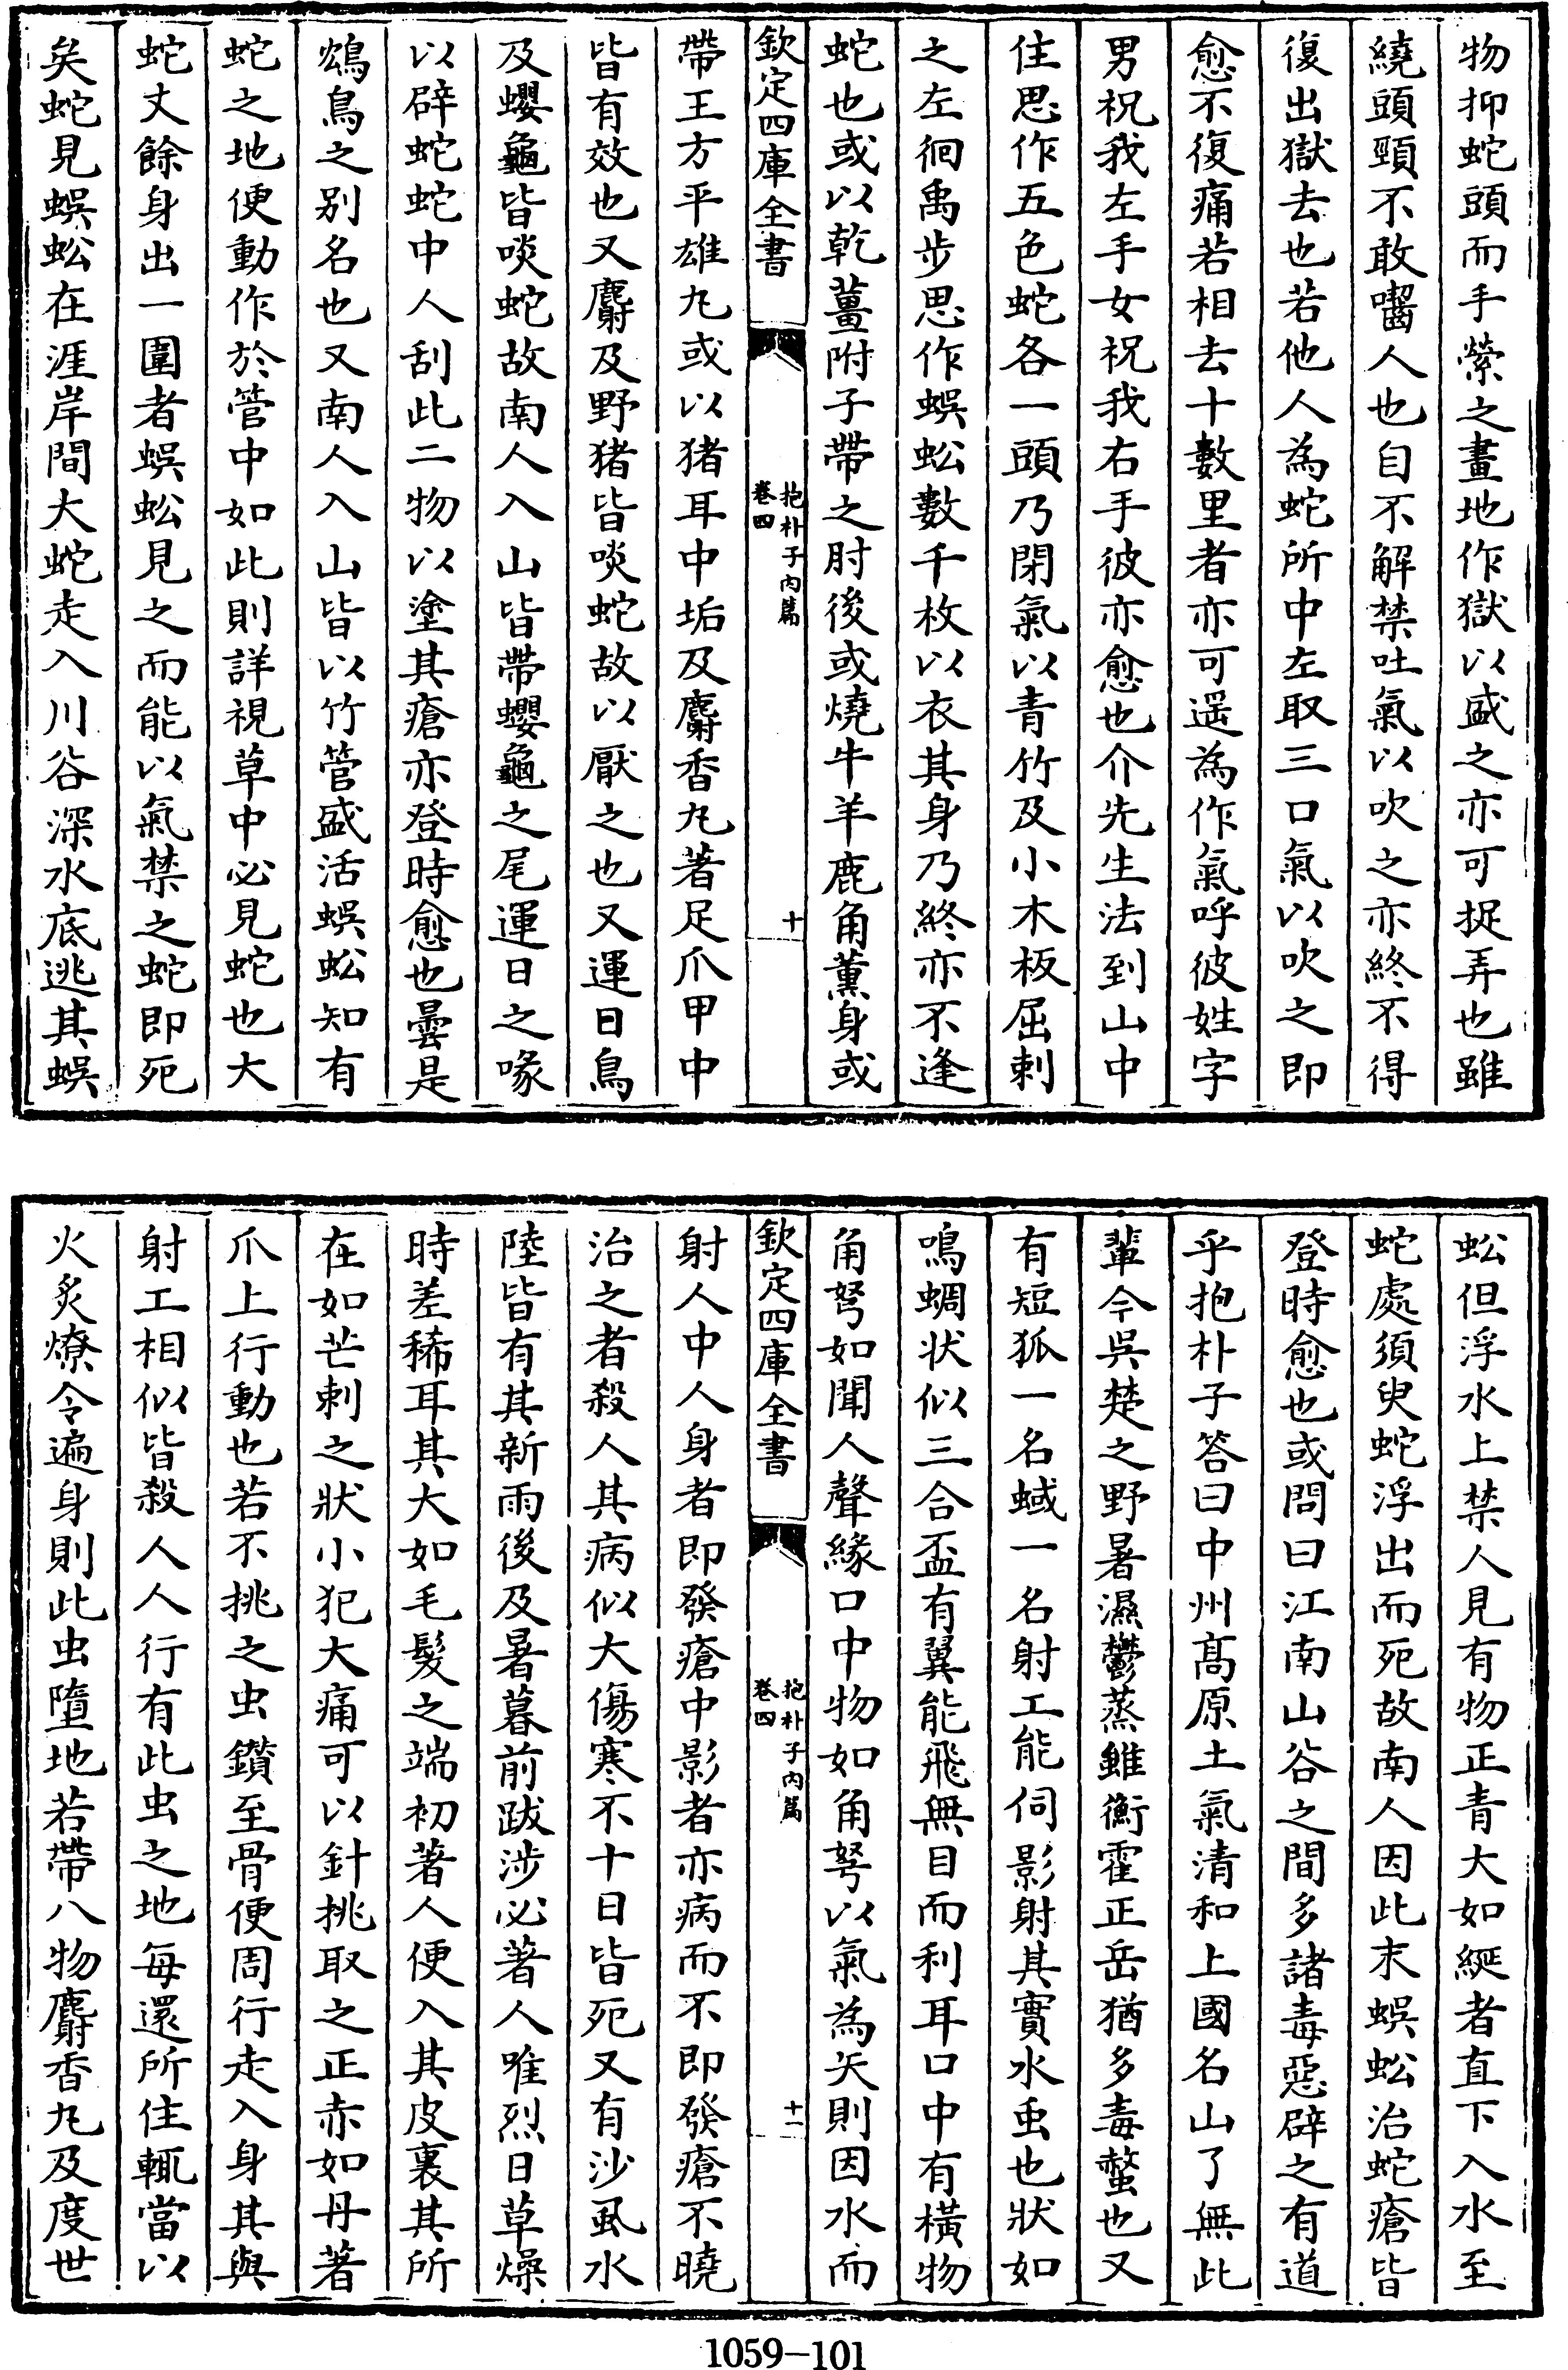 物抑蛇頭而手縈之畫地作獄以盛之亦可捉弄也雖
繞頭頸不敢嚙人也自不解禁吐氣以吹之亦終不得
復出獄去也若他人為蛇所中左取三口氣以吹之即
愈不復痛若相去十數里者亦可遥為作氣呼彼姓字
男祝我左手女祝我右手彼亦愈也介先生法到山中
住思作五色蛇各一頭乃閉氣以青竹及小木板屈刺
之左徊禹步思作蜈蚣數千枚以衣其身乃終亦不逢
蛇也或以乾薑附子帶之肘後或燒牛羊鹿角薰身或
欽定四庫全書
抱朴子内篇
卷四
十
帶王方平雄丸或以猪耳中垢及麝香丸著足爪甲中
皆有效也又麝及野猪皆啖蛇故以厭之也又運日鳥
及蠳龜皆啖蛇故南人入山皆帶蠳龜之尾運日之喙
以辟蛇蛇中人刮此二物以塗其瘡亦登時愈也曇是
鴆鳥之别名也又南人入山皆以竹管盛活蜈蚣知有
蛇之地便動作於管中如此則詳視草中必見蛇也大
蛇丈餘身出一圍者蜈蚣見之而能以氣禁之蛇即死
矣蛇見蜈蚣在涯岸間大蛇走入川谷深水底逃其蜈
蚣但浮水上禁人見有物正青大如綖者直下入水至
蛇處須臾蛇浮出而死故南人因此末蜈蚣治蛇瘡皆
登時愈也或問曰江南山谷之間多諸毒惡辟之有道
乎抱朴子答曰中州髙原土氣清和上國名山了無此
輩今吳楚之野暑濕鬱蒸雖衡霍正岳猶多毒螫也又
有短狐一名蜮一名射工能伺影射其實水虫也狀如
鳴蜩状似三合盃有翼能飛無目而利耳口中有橫物
角弩如聞人聲緣口中物如角弩以氣為矢則因水而
欽定四庫全書
抱朴子内篇
卷四
十一
射人中人身者即發瘡中影者亦病而不即發瘡不曉
治之者殺人其病似大傷寒不十日皆死又有沙虱水
陸皆有其新雨後及暑暮前跋涉必著人唯烈日草燥
時差稀耳其大如毛髮之端初著人便入其皮裏其所
在如芒刺之狀小犯大痛可以針挑取之正赤如丹著
爪上行動也若不挑之虫鑽至骨便周行走入身其與
射工相似皆殺人人行有此虫之地每還所住輒當以
火炙燎令遍身則此虫墮地若帶八物麝香丸及度世
1059-101